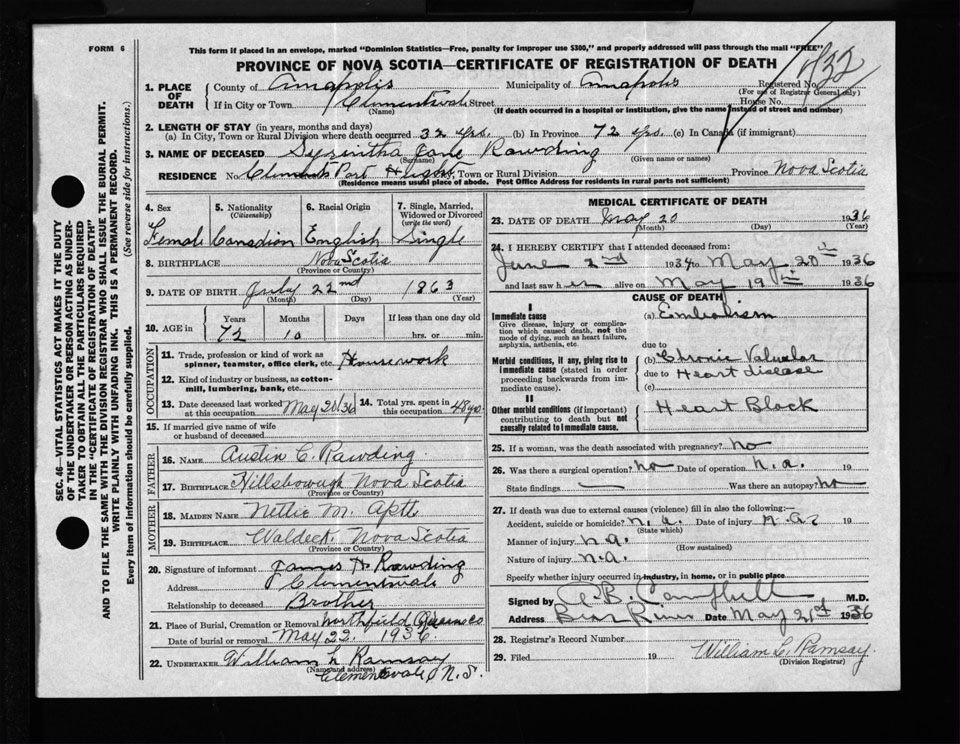 FORM 6
This form if placed in an envelope, marked "Dominion Statistics—Free, penalty for improper use $300," and properly addressed will pass through the mail "FREE"
PROVINCE OF NOVA SCOTIA—CERTIFICATE OF REGISTRATION OF DEATH
832
1. PLACE OF DEATH
County of Annapolis Municipality of Annapolis Registered No.
(For use of Registrar General only)
If in City or Town Clementsvale Street House No.
(Name) (If death occurred in a hospital or institution, give the name instead of street and number)
2. LENGTH OF STAY (in years, months and days)
(a) In City, Town or Rural Division where death occurred 32 yrs. (b) In Province 72 yrs. (c) In Canada (if immigrant)
3. NAME OF DECEASED Jane Rawding
(Surname) (Given name or names)
RESIDENCE No. Town or Rural Division Province Nova Scotia
(Residence means usual place of abode. Post Office Address for residents in rural parts not sufficient)
4. Sex 5. Nationality (Citizenship) 6. Racial Origin 7. Single, Married, Widowed or Divorced (write the word)
Female Canadian English Single
8. BIRTHPLACE Nova Scotia
(Province or Country)
9. DATE OF BIRTH July 22nd 1863
(Month) (Day) (Year)
10. AGE in Years Months Days If less than one day old
72 10 hrs. or min.
OCCUPATION
11. Trade, profession or kind of work as spinner, teamster, office clerk, etc. Housework
12. Kind of industry or business, as cotton-mill, lumbering, bank, etc.
13. Date deceased last worked at this occupation May 20/36 14. Total yrs. spent in this occupation 48 yrs.
15. If married give name of wife or husband of deceased
FATHER
16. NAME Austin C. Rawding
17. BIRTHPLACE Hillsborough Nova Scotia
(Province or Country)
MOTHER
18. MAIDEN NAME Nettie M.
19. BIRTHPLACE Waldeck Nova Scotia
(Province or Country)
20. Signature of informant James H. Rawding
Address Clementsvale
Relationship to deceased Brother
21. Place of Burial, Cremation or Removal Northfield
Date of burial or removal May 22. 1936
22. UNDERTAKER William L Ramsay
(Name and address) Clementsvale N.S.
MEDICAL CERTIFICATE OF DEATH
23. DATE OF DEATH May 20 1936
(Month) (Day) (Year)
24. I HEREBY CERTIFY that I attended deceased from:
June 2nd 1934 to May 20th 1936
and last saw her alive on May 19th 1936
CAUSE OF DEATH
I
Immediate cause
Give disease, injury or complication which caused death, not the mode of dying, such as heart failure, asphyxia, asthenia, etc.
(a) Embolism
due to
Morbid conditions, if any, giving rise to immediate cause (stated in order proceeding backwards from immediate cause).
(b) Chronic Valvular
due to Heart disease
(c)
II
Other morbid conditions (if important) contributing to death but not causally related to immediate cause.
Heart Block
25. If a woman, was the death associated with pregnancy? no
26. Was there a surgical operation? no Date of operation n.a. 19
State findings — Was there an autopsy? no
27. If death was due to external causes (violence) fill in also the following:—
Accident, suicide or homicide? n.a. Date of injury n.a. 19
(State which)
Manner of injury n.a.
(How sustained)
Nature of injury n.a.
Specify whether injury occurred in industry, in home, or in public place
Signed by Campbell M.D.
Address Bear River Date May 21st 1936
28. Registrar's Record Number
29. Filed 19 William L. Ramsay
(Division Registrar)
SEC. 46—VITAL STATISTICS ACT MAKES IT THE DUTY
OF THE UNDERTAKER OR PERSON ACTING AS UNDER-
TAKER TO OBTAIN ALL THE PARTICULARS REQUIRED
IN THE "CERTIFICATE OF REGISTRATION OF DEATH"
AND TO FILE THE SAME WITH THE DIVISION REGISTRAR WHO SHALL ISSUE THE BURIAL PERMIT.
WRITE PLAINLY WITH UNFADING INK. THIS IS A PERMANENT RECORD.
Every item of information should be carefully supplied. (See reverse side for instructions.)